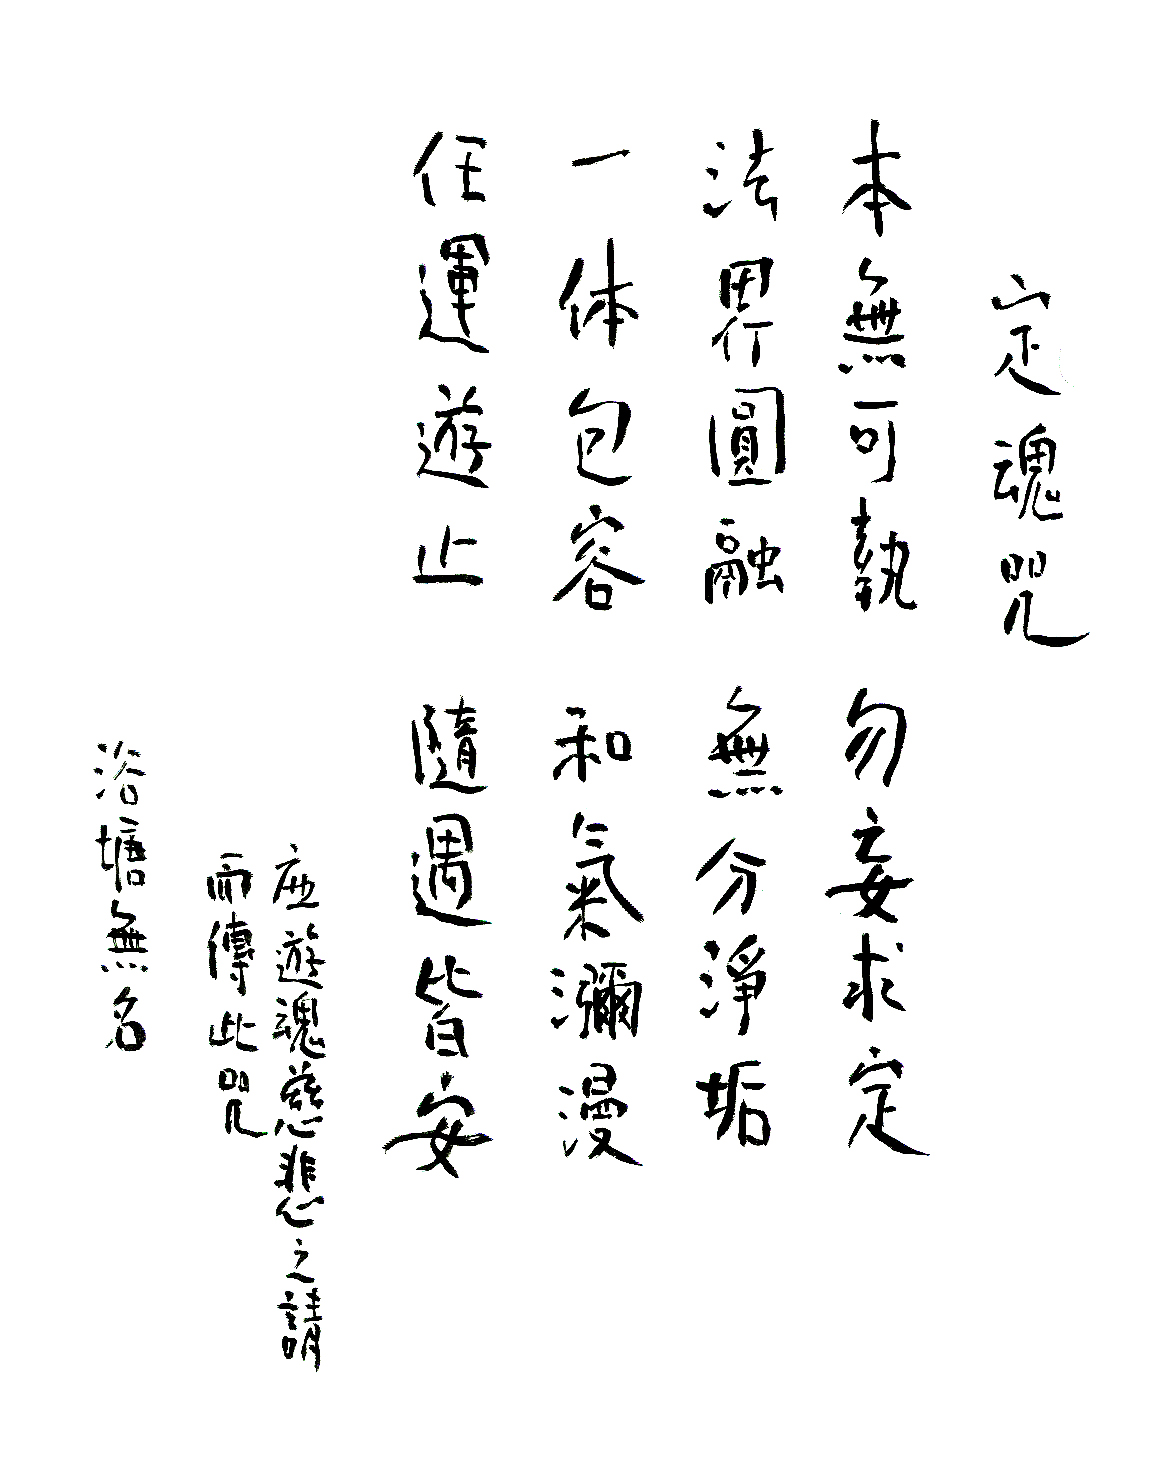 定魂咒
本無可執 勿妄求定
法界圓融 無分淨垢
一体包容 和氣瀰漫
任運遊止 隨遇皆安
应遊魂慈悲之請
而傳此咒
浴塘無名